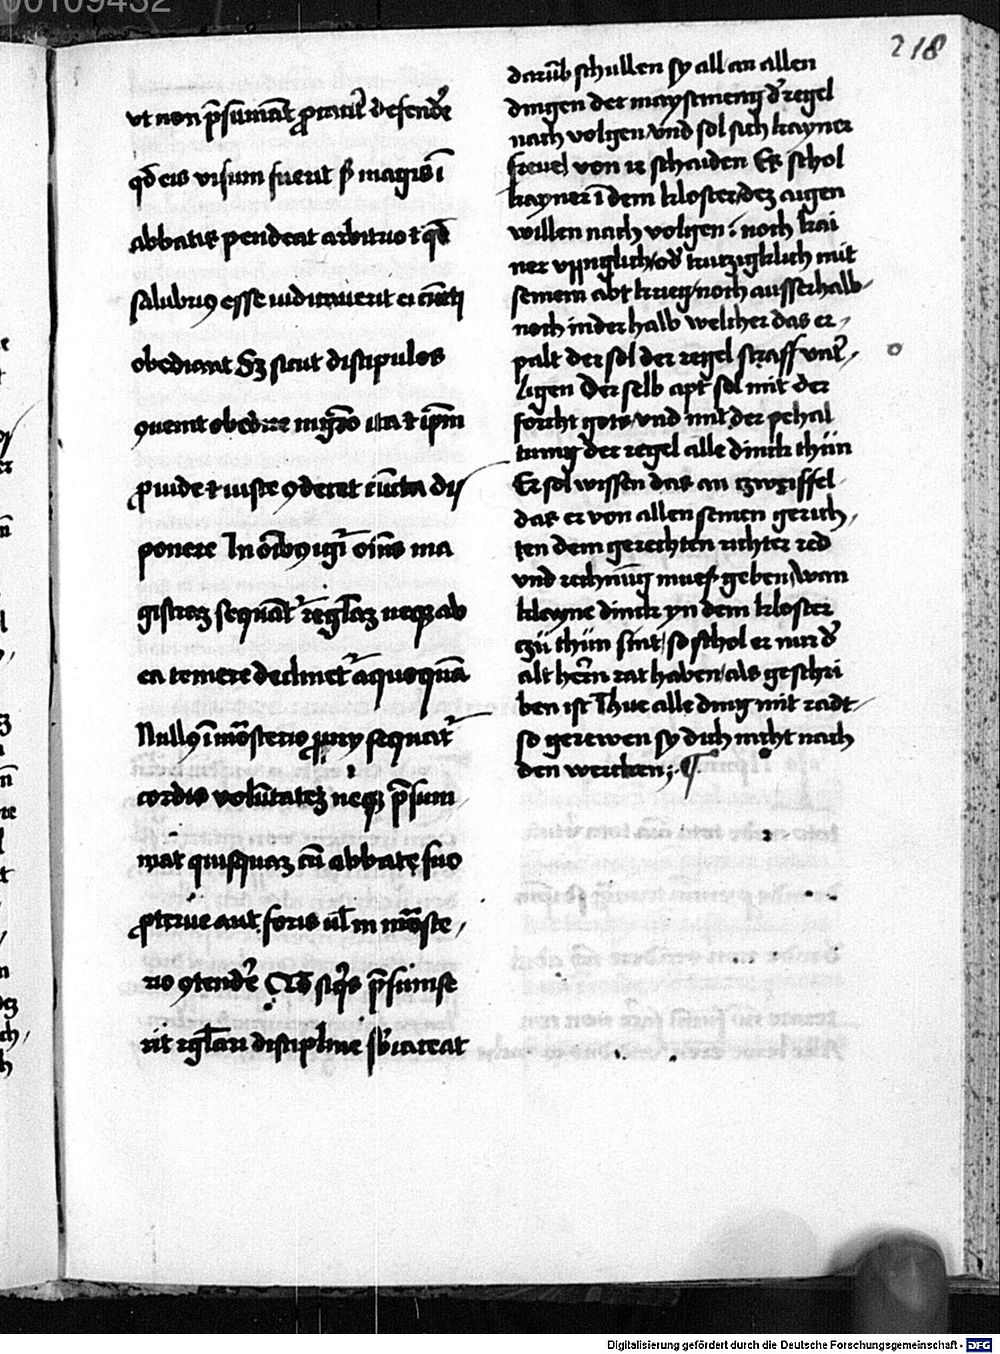 00109432
218
vt non p̄sumāt ꝓcacit᷑ defende᷑
qd̄ eis visum fuerit ꝫ magis ī
abbatis pendeat arbitrio ⁊ qd̄
salubriꝰ esse iudicauerit ei cūcti
obediant Sꝫ sicut discipulos
ꝯuenit obedire mgr̄o ita ⁊ ip̄m
ꝓuide ⁊ iuste ꝯdecet cūcta dis
ponere In oībꝫ igr̄ oīns ma
gistraꝫ sequāt᷑ regl̄aꝫ neqꝫ ab
ea temere declinet᷑ a quoquā
Nullꝰ ī mōsterio ꝓprij sequat᷑
cordis volūtateꝫ neqꝫ p̄sum
mat quisquaꝫ cū abbate suo
ꝓterue aut foris ul̄ in mōste,
rio ꝯtende᷑ Qd̄ siq̄s p̄sumse
rit rgl̄ari discipline sb̄iaceat
darūb schullen sy all an allen
dingen der maystrneng d᷑ regel
nach volgen vnd sol sich kayner
freuel von ir schaiden Es schol
kayner ī dem kloster dez aigen
willen nach volgen noch kai
ner vppiglich od᷑ trutzigklich mit
seinem abt krieg noch ausserhalb
noch inderhalb welcher das er,
palt der sol der regel straff vnt᷑,
ligen Der selb apt sol mit der
forcht gots vnd mit der pehal
tung der regel alle dinck thün
Er sol wissen das an tzweiffel
das er von allen seinen gerich,
ten dem gerechten richter red
vnd rechnūg muess geben wan
klayne dinck yn dem kloster
tzü thün sint so schol er nur d᷑
alt herrn rat haben als geschri
ben ist Thue alle ding mit radt
so gerewen sy dich nicht nach
den wercken;
Digitalisierung gefördert durch die Deutsche Forschungsgemeinschaft - DFG